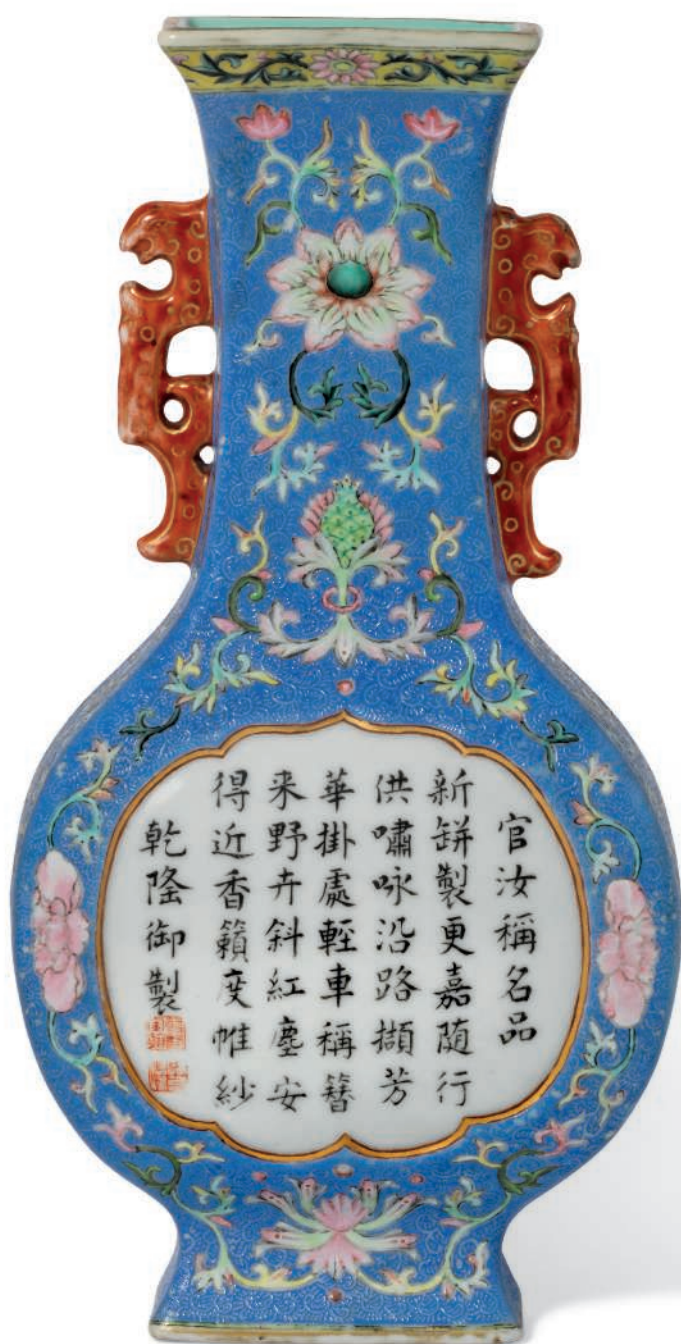 官汝稱名品
新缾製更嘉随行
供嘯咏沿路擷芳
華掛處輕車稱簪
来野卉斜紅塵安
得近香籟度帷紗
乾隆御製